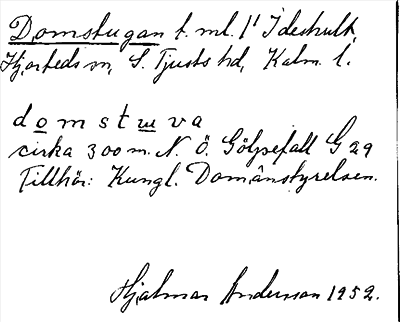 Domstugan t. ml. 1' Ideshult,
Hjorteds sn, S. Tjusts hd, Kalm. l.
domstuva
cirka 300 m. N. Ö. Göljefall G 29
Tillhör: Kungl. Domänstyrelsen.
Hjalmar Anderson 1952.